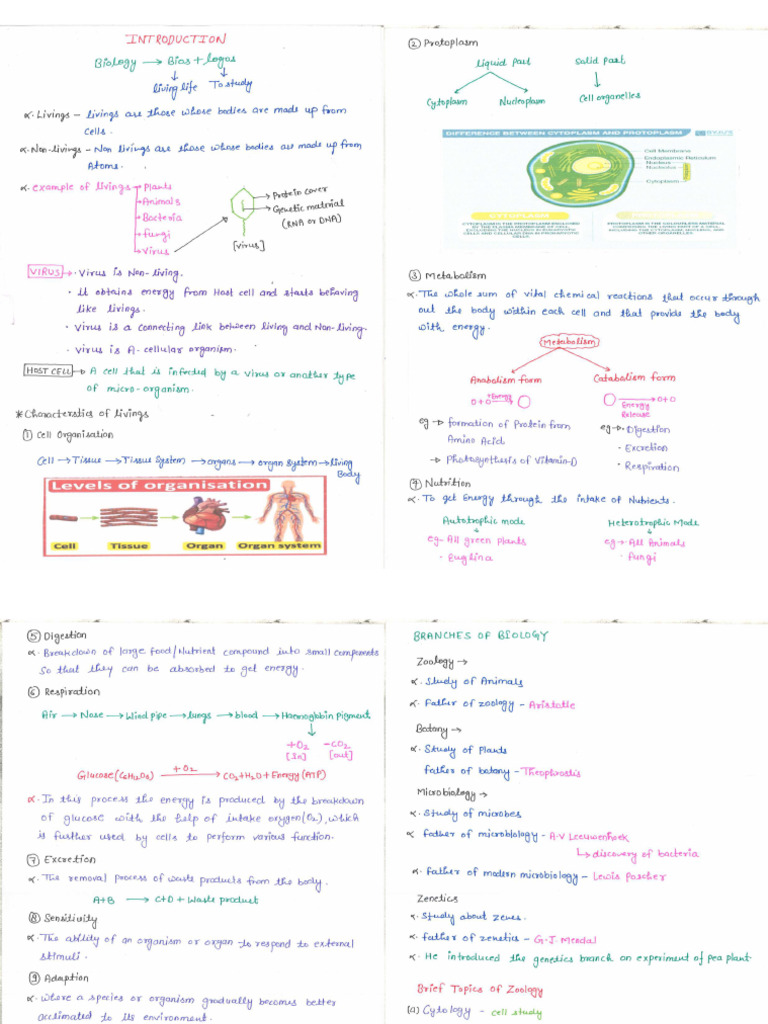 INTRODUCTION
Biology → Bios + logos
↓ ↓
living life To study
α. Livings - livings are those whose bodies are made up from
cells.
α. Non-livings - Non livings are those whose bodies are made up from
Atoms.
α. example of livings → Plants
→ Animals
→ Bacteria
→ fungi
→ Virus
→ Protein cover
→ Genetic matrial
(RNA or DNA)
[virus]
VIRUS → • Virus is Non-living.
• It obtains energy from Host cell and starts behaving
like livings.
• Virus is a connecting link between living and Non-living.
• Virus is A-cellular organism.
HOST CELL → A cell that is infected by a virus or another type
of micro-organism.
* Characterstics of livings
① Cell Organisation
Cell → Tissue → Tissue System → organs → organ System → living
Body
Levels of organisation
Cell Tissue Organ Organ system
② Protoplasm
liquid Part Solid part
Cytoplasm Nucleoplasm Cell organelles
DIFFERENCE BETWEEN CYTOPLASM AND PROTOPLASM BYJU'S
Cell Membrane
Endoplasmic Reticulum
Nucleus
Nucleolus
Cytoplasm
CYTOPLASM
③ Metabolism
α. The whole sum of vital chemical reactions that occur through
out the body within each cell and that provide the body
with energy.
Metabolism
Anabolism form Catabolism form
O + O +Energy → O O → Energy Release O+O
eg → formation of Protein from
Amino Acid
→ Photosynthesis of Vitamin-D
eg → • Digestion
• Excretion
• Respiration
④ Nutrition
α. To get Energy through the intake of Nutrients.
Autotrophic mode Heterotrophic Mode
eg- All green plants
• Euglina
eg → All Animals
• fungi
⑤ Digestion
α. Breakdown of large food/Nutrient compound into small components
so that they can be absorbed to get energy.
⑥ Respiration
Air → Nose → Wind pipe → lungs → blood → Haemoglobin pigment
+O2 -CO2
[In] [out]
Glucose (C6H12O6) +O2 → CO2+H2O+Energy (ATP)
α. In this process the energy is produced by the breakdown
of glucose with the help of intake oxygen (O2), which
is further used by cells to perform various function.
⑦ Excretion
α. The removal process of waste products from the body.
A+B → C+D + Waste product
⑧ Sensitivity
α. The ability of an organism or organ to respond to external
stimuli.
⑨ Adaption
α. where a species or organism gradually becomes better
acclimated to its environment.
BRANCHES OF BIOLOGY
Zoology →
α. Study of Animals
α. Father of zoology - Aristotle
Botany →
α. Study of Plants
father of botany - Theophrostis
Microbiology →
α. Study of microbes
α father of microbiology - A.V Leeuwenhoek
↳ discovery of bacteria
α. father of modern microbiology - Lewis Pascher
Zenetics
α. Study about zenes.
α. father of zenetics - G.J. Mendal
α. He introduced the genetics branch on experiment of pea plant
Brief Topics of Zoology
(a) Cytology - cell study